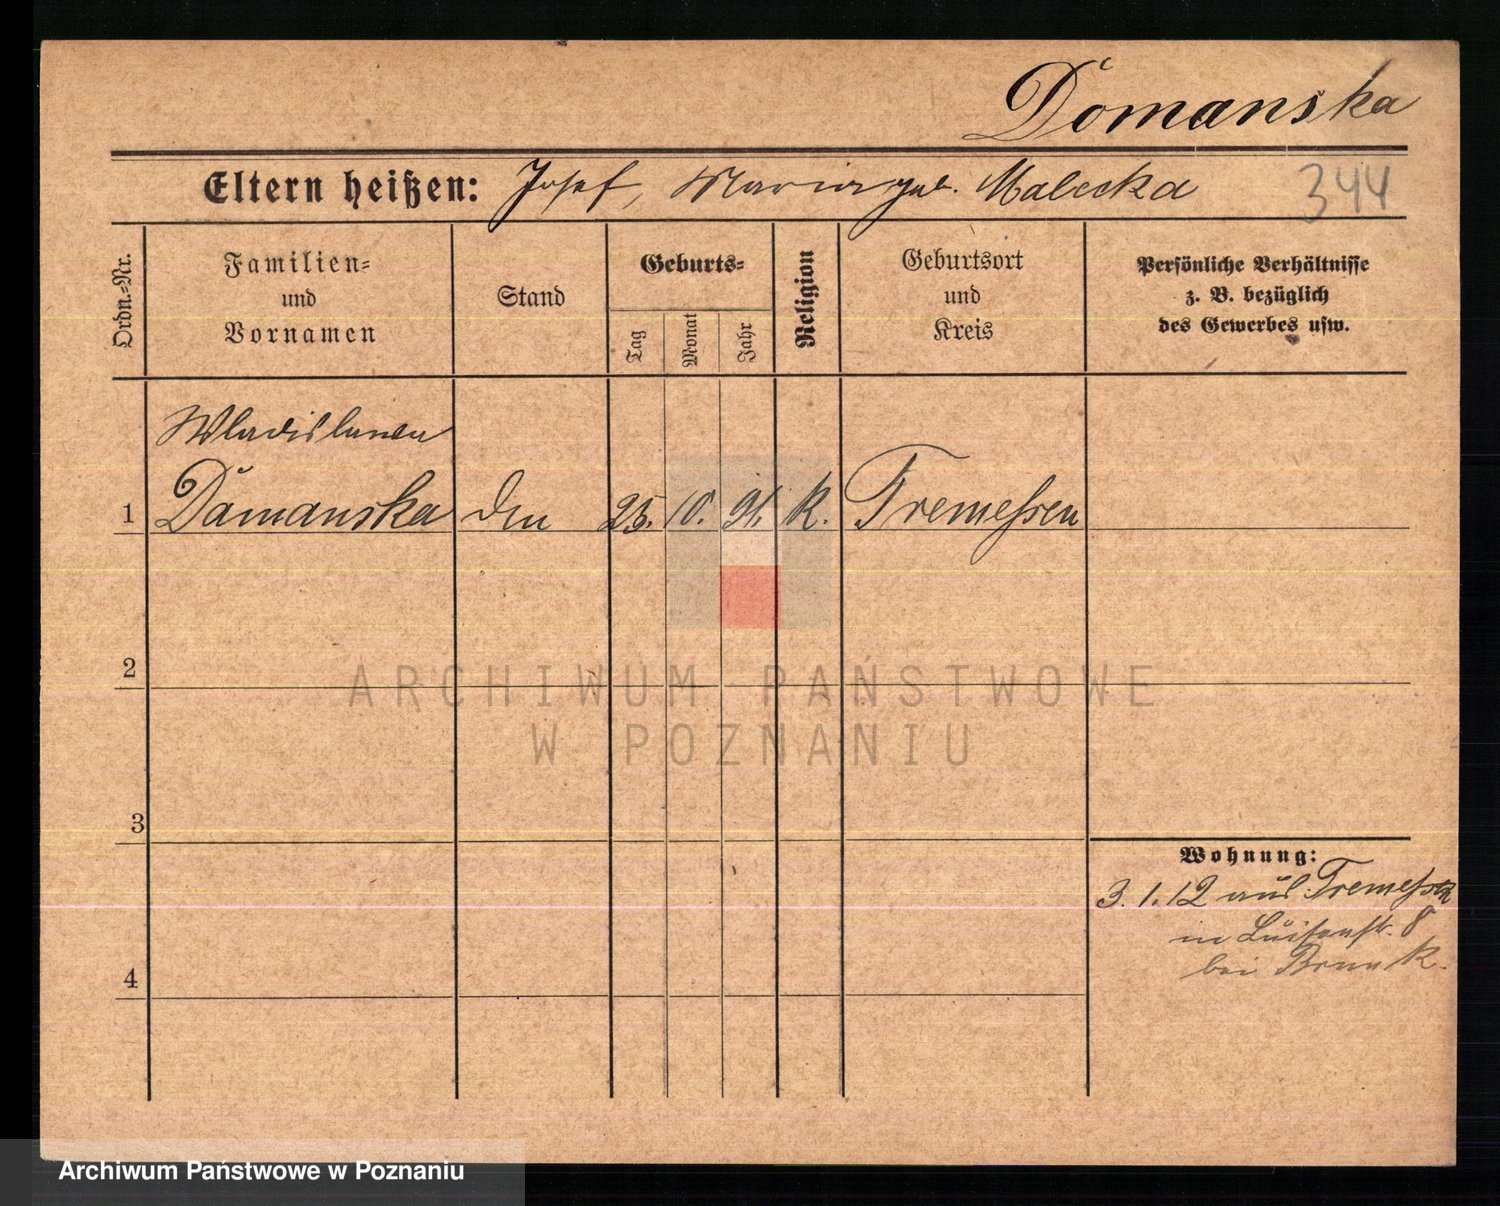 Domanska
Eltern heißen: Josef, Maria geb. Malecka
344
Ordn.-Nr.
Familien-
und
Vornamen
Stand
Geburts-
Tag
Monat
Jahr
Religion
Geburtsort
und
Kreis
Persönliche Verhältnisse
z. B. bezüglich
des Gewerbes usw.
Wladislawa
1 Domanska 25. 10. 91. k. Tremessen
2
ARCHIWUM PAŃSTWOWE
W POZNANIU
3
Wohnung:
3.1.12 aus Tremessen
in Luisenstr. 8
bei
4
Archiwum Państwowe w Poznaniu